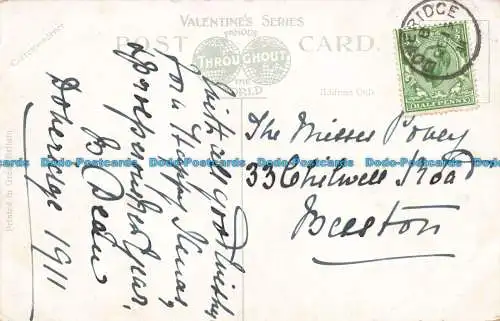 VALENTINE'S SERIES
FAMOUS
POST CARD.
THROUGHOUT
THE
WORLD
Correspondence
Address Only
Printed in Great Britain
HALFPENNY
BRIDGE
With all good wishes
for a Happy Xmas,
& prosperous
year,
B Dean
1911
The Misses Povey
33 Chilwell Road
Beeston
Dodo-Postcards Dodo-Postcards Dodo-Postcards Dodo-Postcards Dodo-Postcards Dodo-Postcards